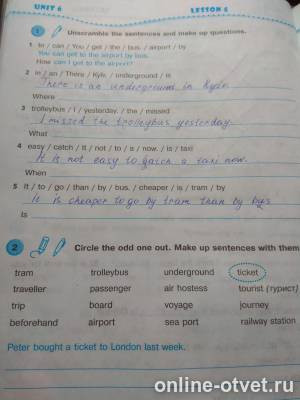 UNIT 6 LESSON 6
1 Unscramble the sentences and make up questions.
1 to / can / You / get / the / bus. / airport / by
You can get to the airport by bus.
How can I get to the airport?
2 in / an / There / Kyiv. / underground / is
There is an underground in Kyiv
Where
3 trolleybus / I / yesterday. / the / missed
I missed the trolleybus yesterday.
What
4 easy / catch / It / not / to / is / now. / is / taxi
It is not easy to catch a taxi now.
When
5 It / to / go / than / by / bus. / cheaper / is / tram / by
It is cheaper to go by tram than by bus
Is
2 Circle the odd one out. Make up sentences with them
tram trolleybus underground ticket
traveller passenger air hostess tourist (турист)
trip board voyage journey
beforehand airport sea port railway station
Peter bought a ticket to London last week.
online-otvet.ru